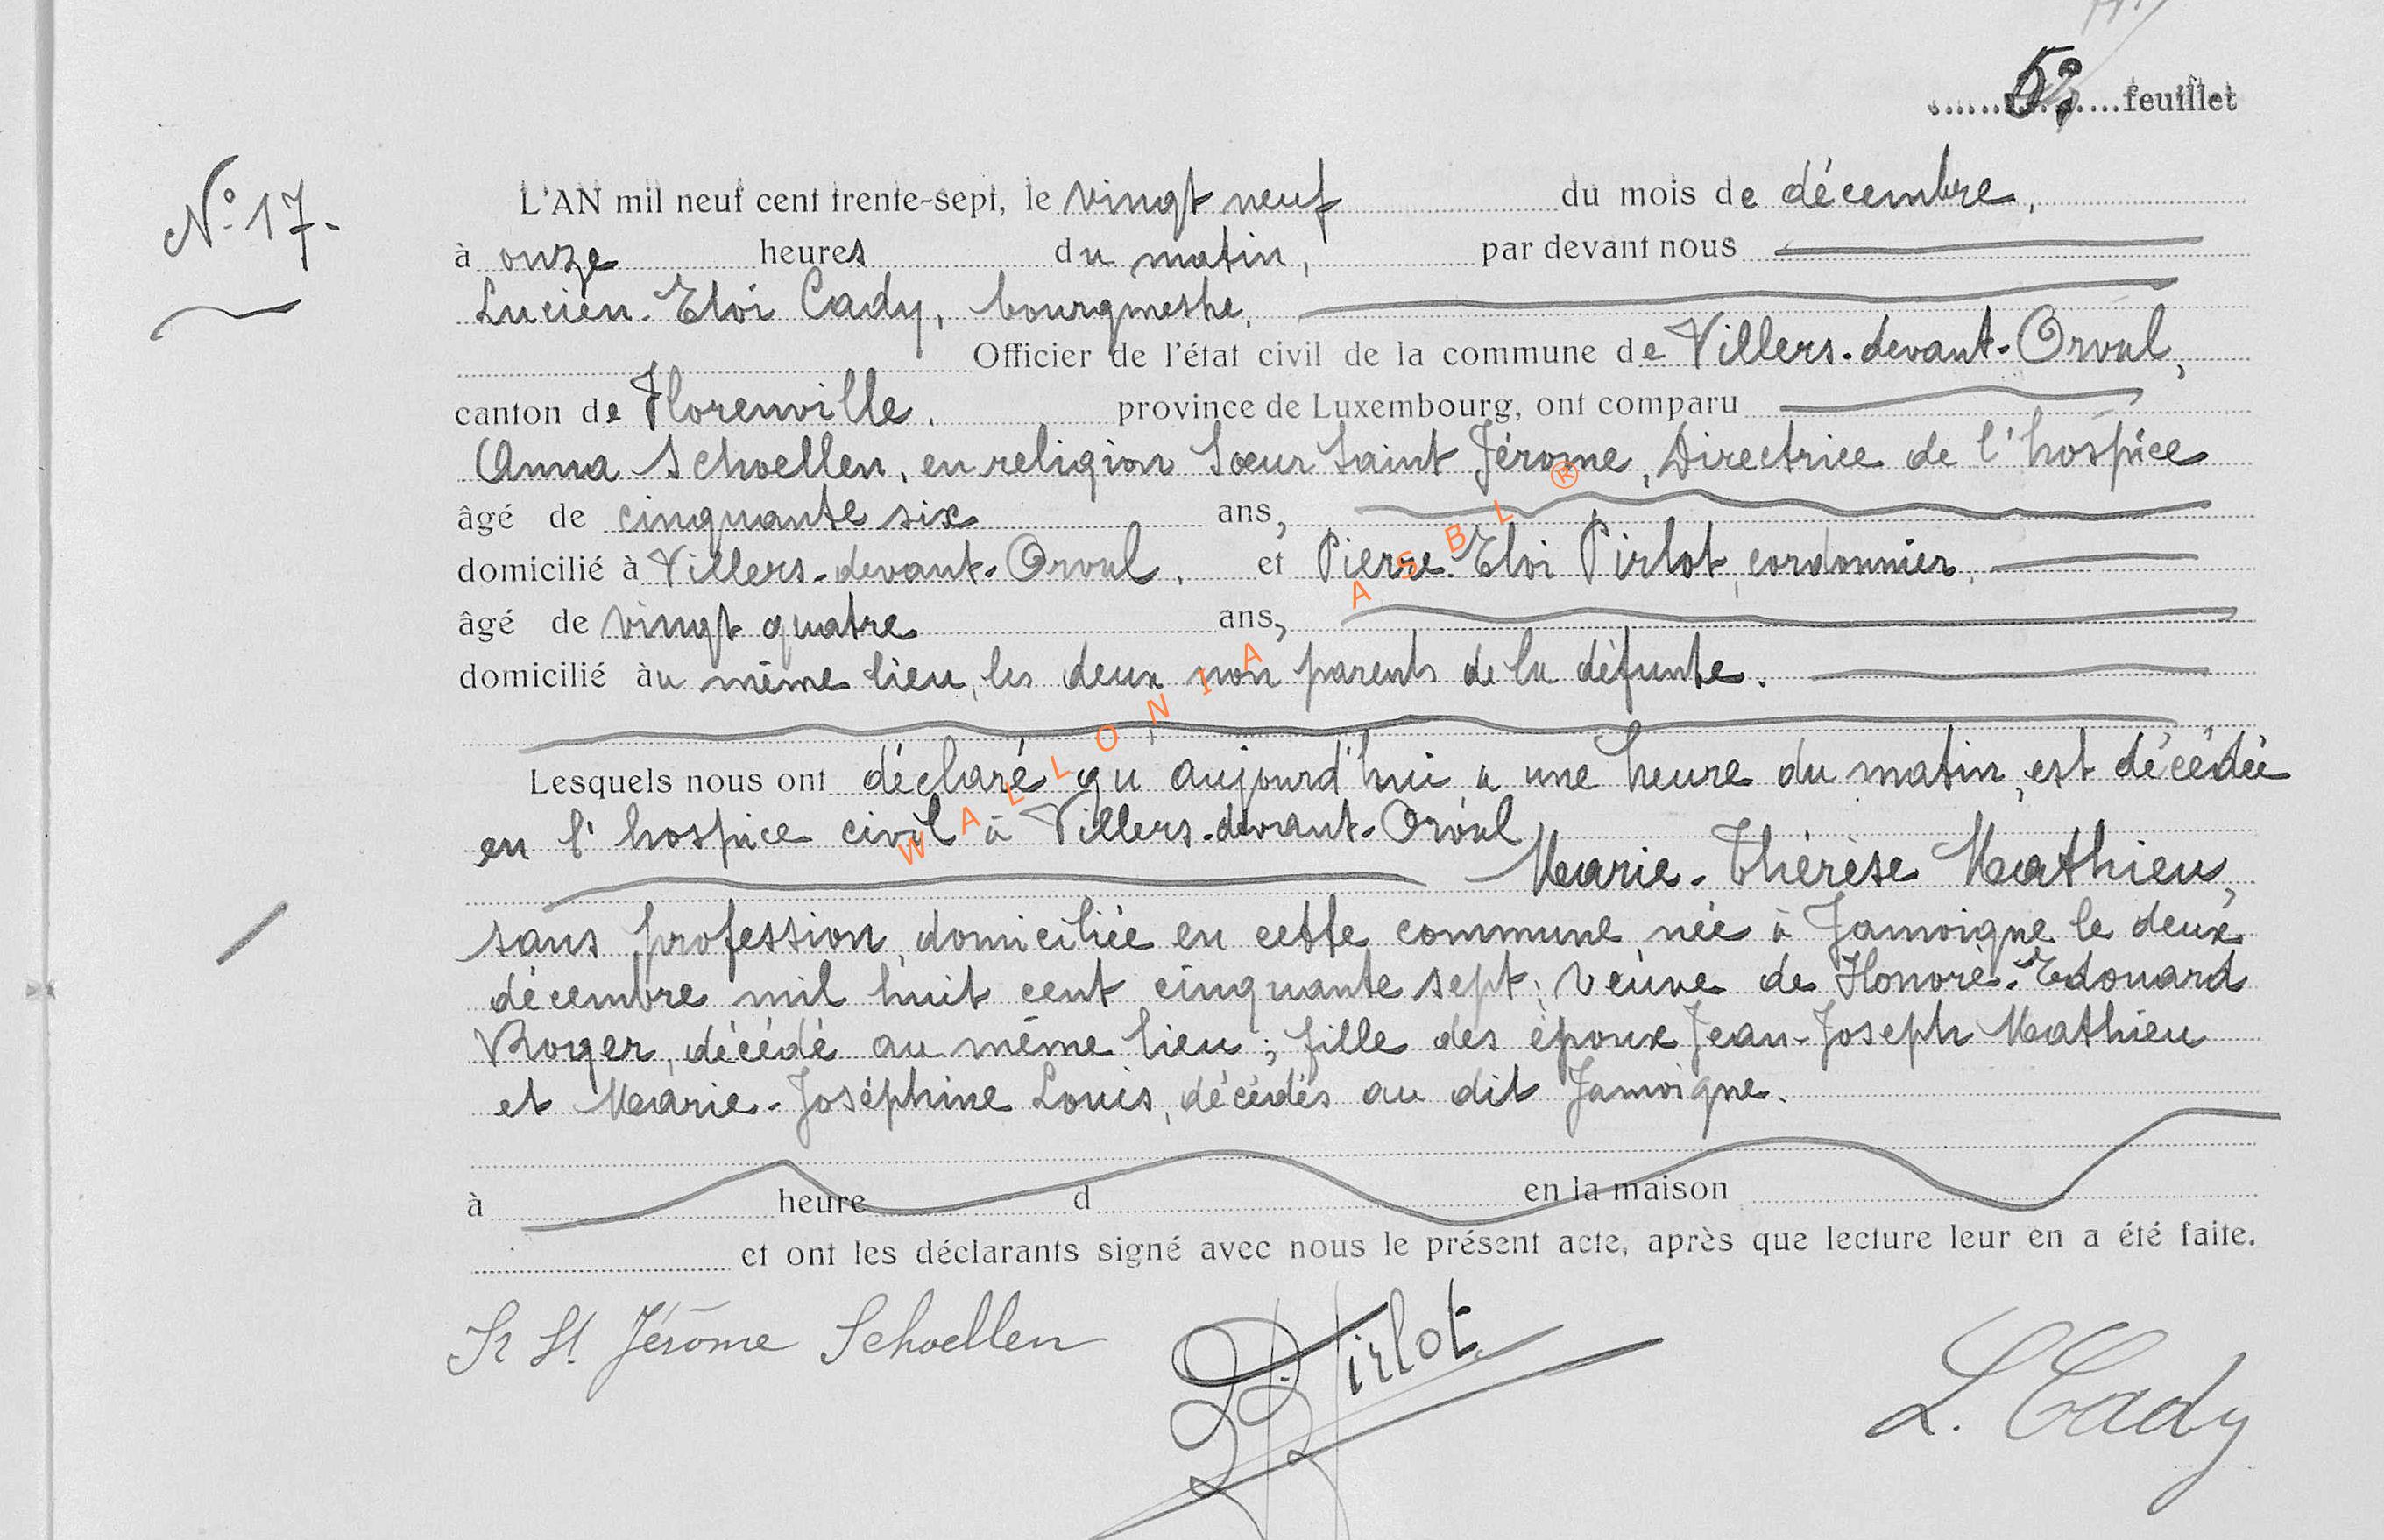 5e feuillet
No 17.
L'AN mil neuf cent trente-sept, le vingt neuf du mois de décembre,
à onze heures du matin, par devant nous
Lucien-Eloi Cady, bourgmestre,
Officier de l'état civil de la commune de Villers-devant-Orval,
canton de Florenville, province de Luxembourg, ont comparu
Anna Schoellen, en religion Sœur Saint Jérome, Directrice de l'hospice
âgé de cinquante six ans,
domicilié à Villers-devant-Orval, et Pierre-Eloi Pirlot, cordonnier,
âgé de vingt quatre ans,
domicilié au même lieu, les deux non parents de la défunte.
Lesquels nous ont déclaré qu'aujourd'hui à une heure du matin, est décédée
en l'hospice civil à Villers-devant-Orval
Marie-Thérèse Mathieu,
sans profession, domiciliée en cette commune, née à Jamoigne le deux
décembre mil huit cent cinquante sept; veuve de Honoré-Edouard
Roger, décédé au même lieu; fille des époux Jean-Joseph Mathieu
et Marie-Joséphine Louis, décédés au dit Jamoigne.
à heure d en la maison
et ont les déclarants signé avec nous le présent acte, après que lecture leur en a été faite.
Sr St Jérôme Schoellen P. Pirlot L. Cady
WALLONIA ASBL ®